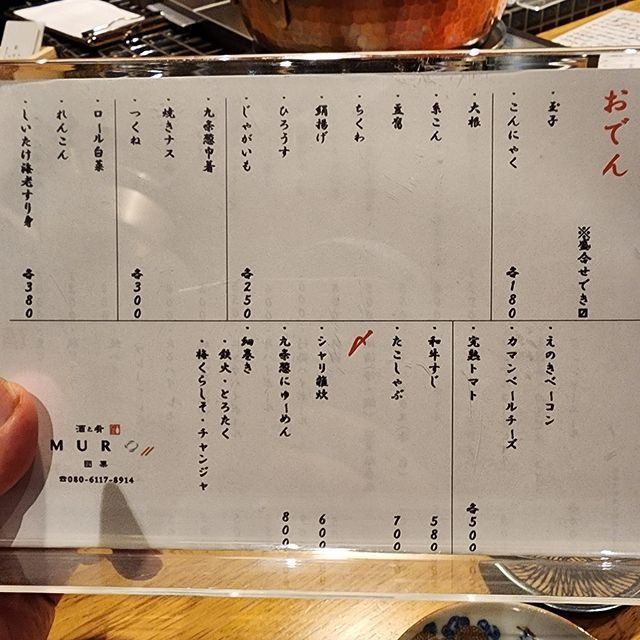 おでん
※盛合せでき〼
・玉子
・こんにゃく
各180
・大根
・糸こん
・豆腐
・ちくわ
・絹揚げ
・ひろうす
・じゃがいも
各250
・九条葱巾着
・焼きナス
・つくね
各300
・ロール白菜
・れんこん
・しいたけ海老すり身
各380
・えのきベーコン
・カマンベールチーズ
・完熟トマト
各500
・和牛すじ 580
・たこしゃぶ 700
〆
・シャリ雑炊 600
・九条葱にゅーめん 800
・細巻き
・鉄火・とろたく
・梅くらしそ・チャンジャ
酒と肴
MURO
団菓
☎080-6117-8914